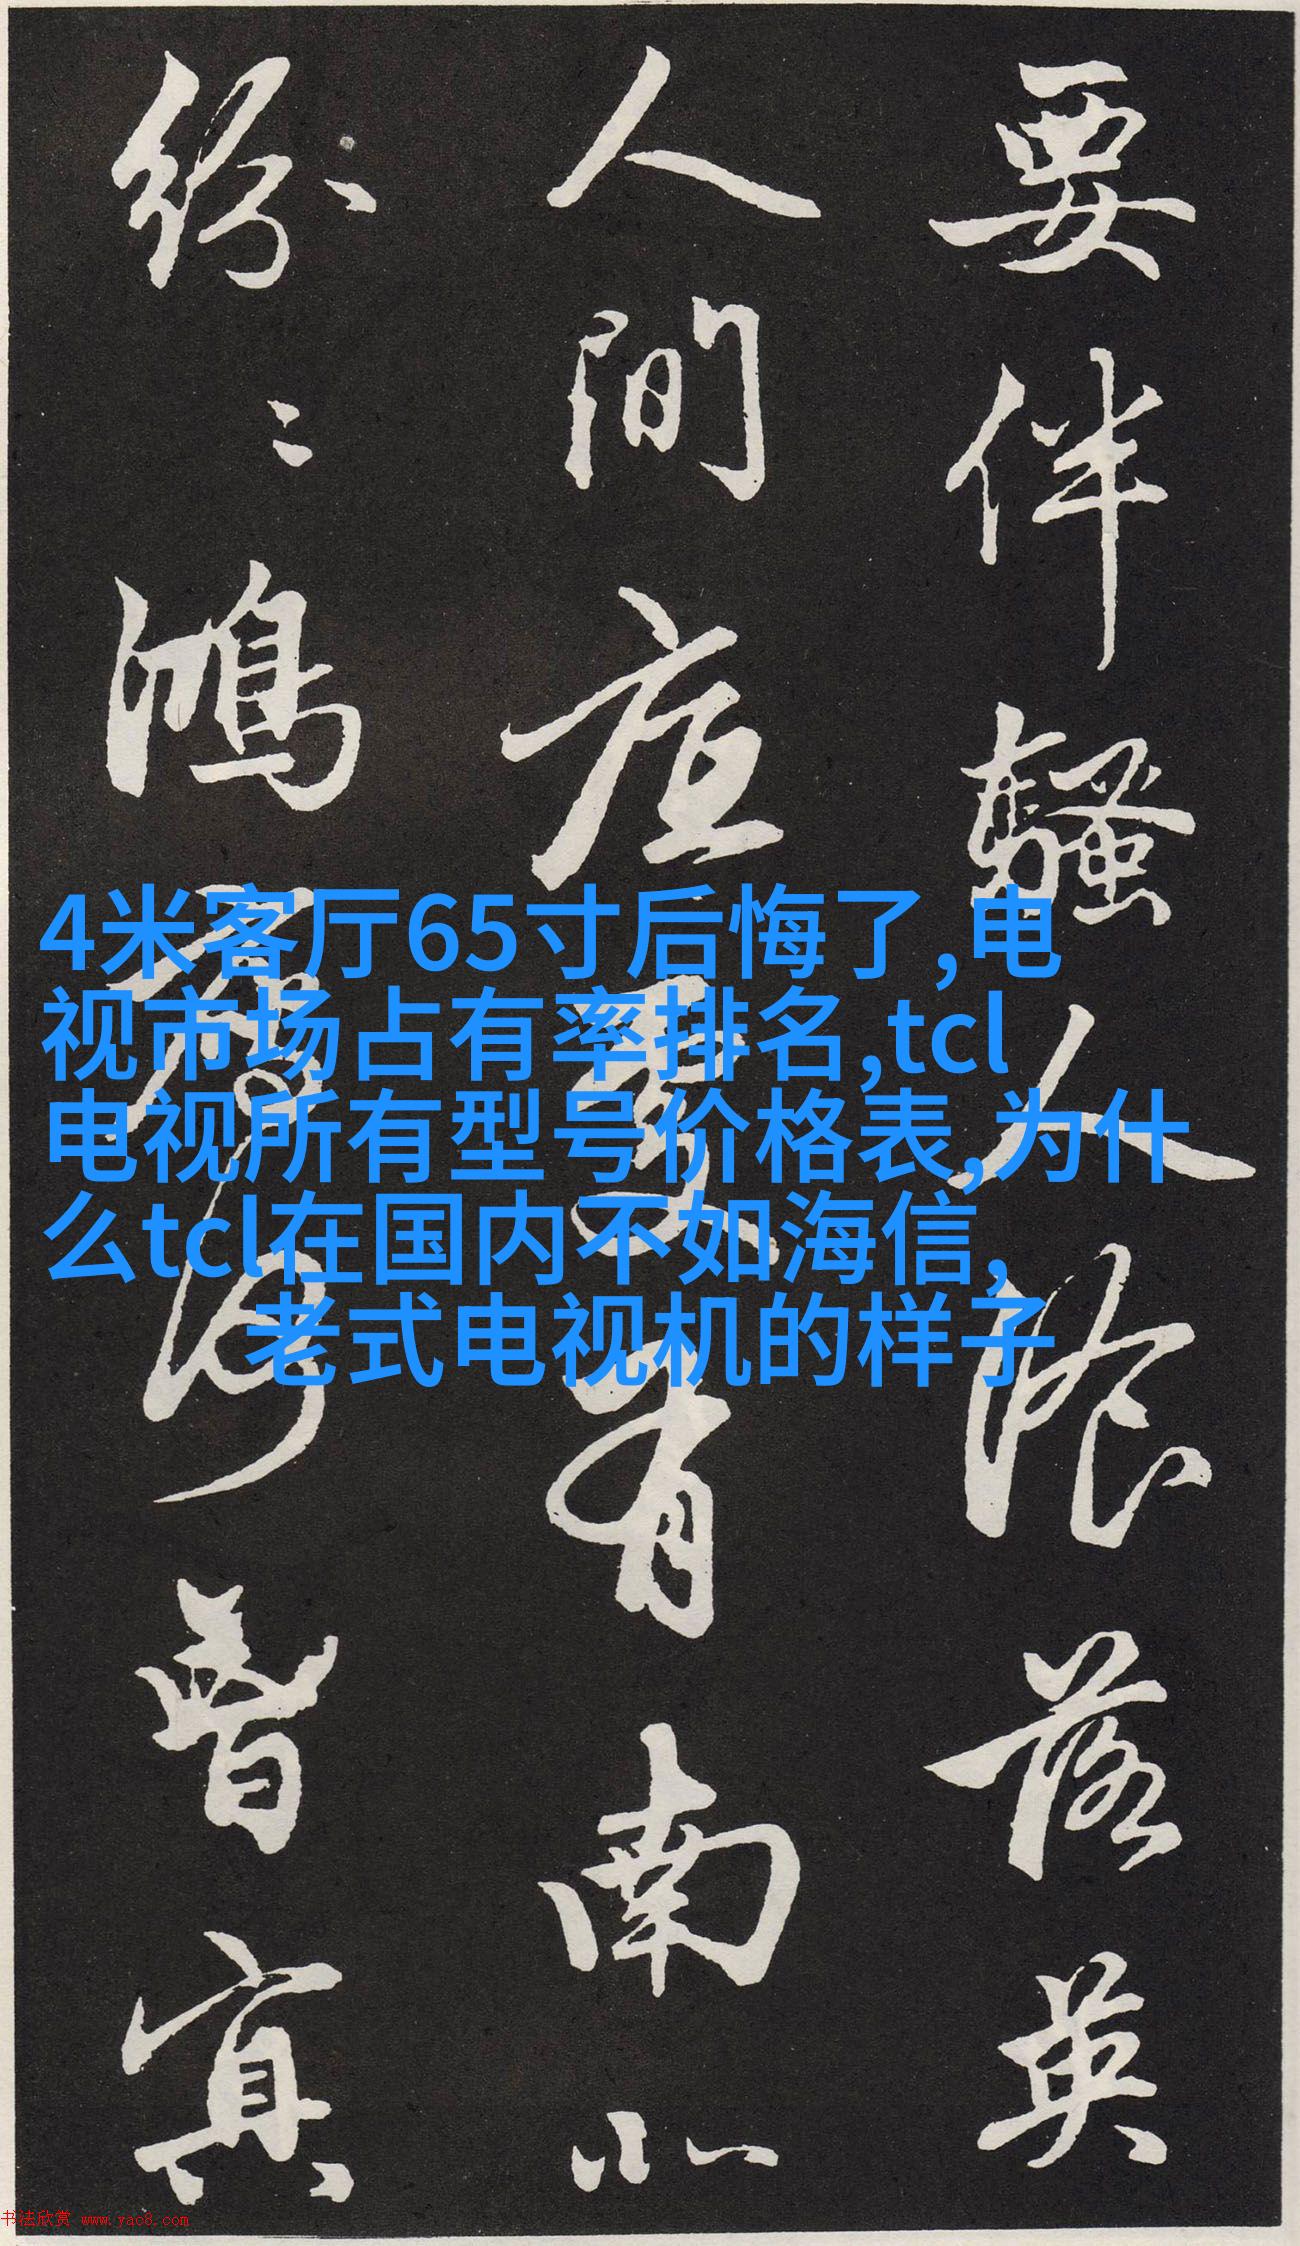 4米客厅65寸后悔了,电
视市场占有率排名,tcl
电视所有型号价格表,为什
么tcl在国内不如海信,
老式电视机的样子
要伴騷人飡落英
人間症夏有南北
紛〻鴻鴈何曾寘
书法欣赏 www.yac8.com